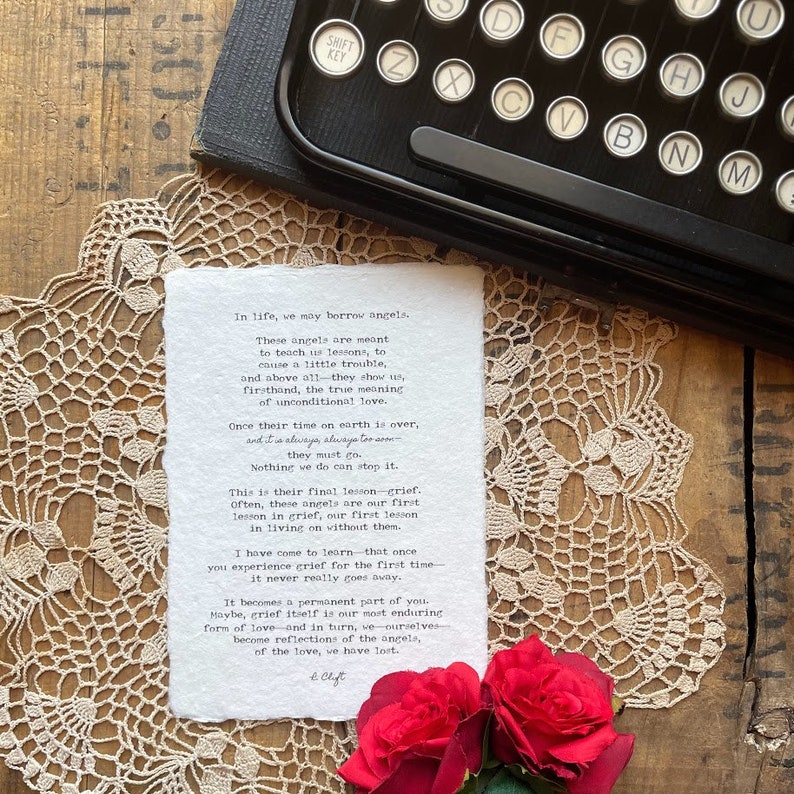 S D F G H J Y U
SHIFT KEY Z X C V B N M
In life, we may borrow angels.
These angels are meant
to teach us lessons, to
cause a little trouble,
and above all—they show us,
firsthand, the true meaning
of unconditional love.
Once their time on earth is over,
and it is always, always too soon—
they must go.
Nothing we do can stop it.
This is their final lesson—grief.
Often, these angels are our first
lesson in grief, our first lesson
in living on without them.
I have come to learn—that once
you experience grief for the first time—
it never really goes away.
It becomes a permanent part of you.
Maybe, grief itself is our most enduring
form of love—and in turn, we—ourselves—
become reflections of the angels,
of the love, we have lost.
R Clift